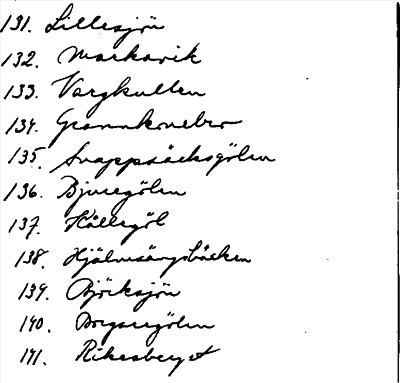 131. Lillesjön
132. Markavik
133. Vargkullen
134.
135. Snappsäcksgölen
136. Bjuregölen
137. Källegöl
138. Hjälmsängsbäcken
139. Björksjön
140.
141. Rikesberget